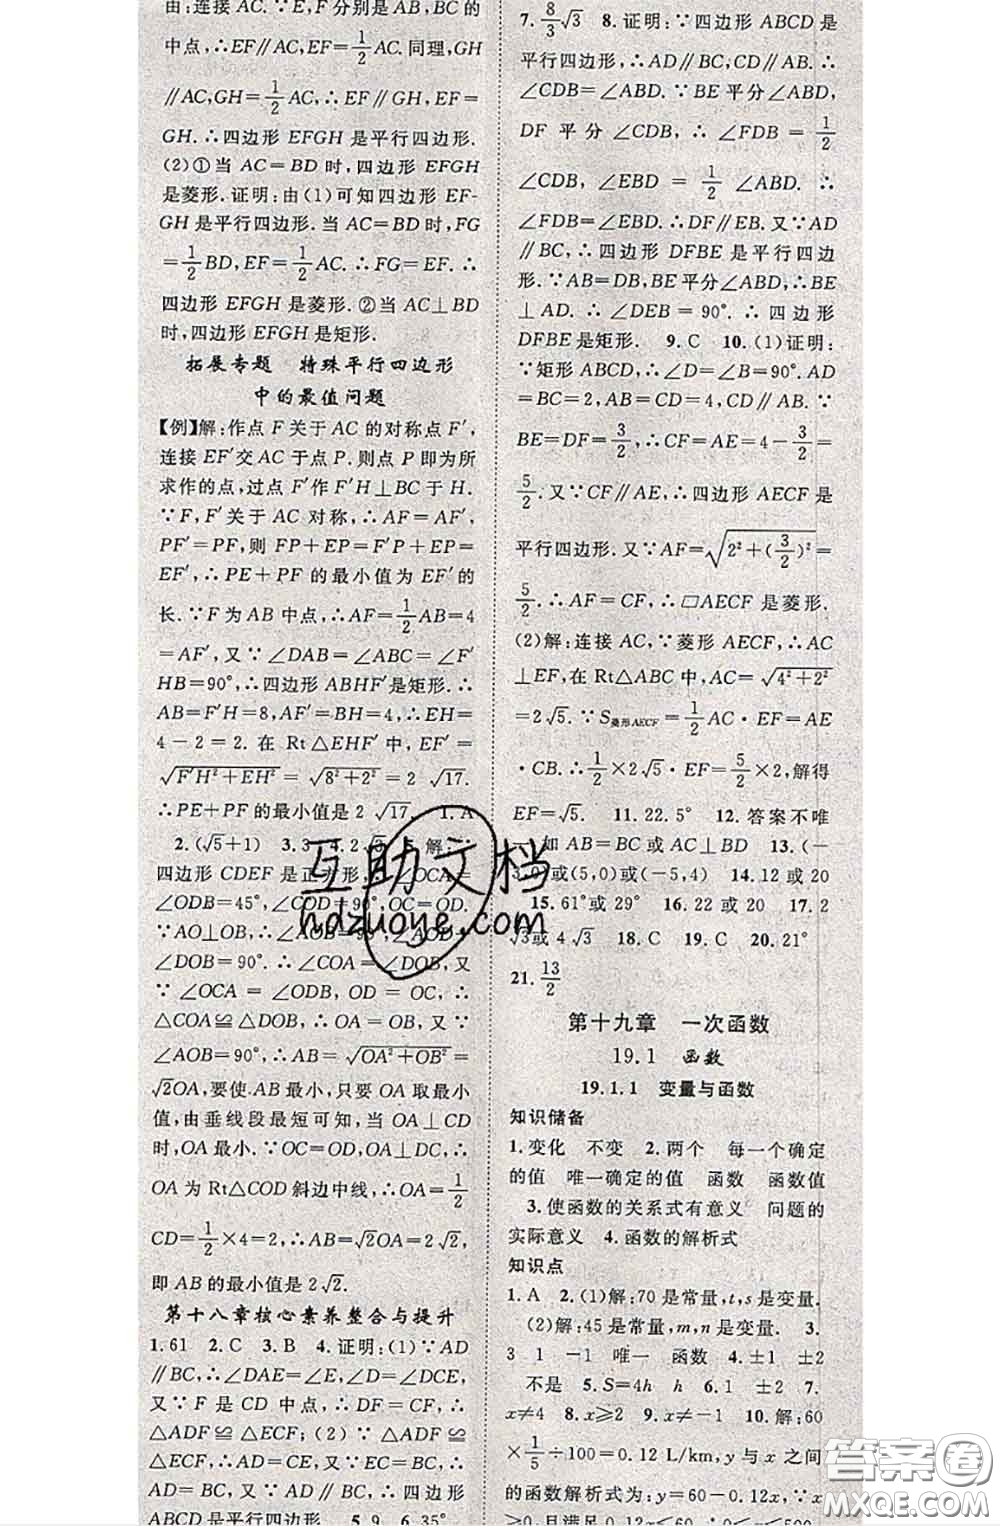 由:连接 AC.∵E,F 分别是 AB,BC 的
中点,∴EF∥AC,EF=1/2 AC.同理,GH
∥AC,GH=1/2 AC,∴EF∥GH,EF=
GH.∴四边形 EFGH 是平行四边形.
(2)①当 AC=BD 时,四边形 EFGH
是菱形.证明:由(1)可知四边形 EF-
GH 是平行四边形.当 AC=BD 时,FG
=1/2 BD,EF=1/2 AC.∴FG=EF.∴
四边形 EFGH 是菱形.②当 AC⊥BD
时,四边形 EFGH 是矩形.
拓展专题 特殊平行四边形
中的最值问题
【例】解:作点 F 关于 AC 的对称点 F′,
连接 EF′交 AC 于点 P.则点 P 即为所
求作的点,过点 F′作 F′H⊥BC 于 H.
∵F,F′关于 AC 对称,∴AF=AF′,
PF′=PF,则 FP+EP=F′P+EP=
EF′,∴PE+PF 的最小值为 EF′的
长.∵F 为 AB 中点,∴AF=1/2 AB=4
=AF′,又∵∠DAB=∠ABC=∠F′
HB=90°,∴四边形 ABHF′是矩形.∴
AB=F′H=8,AF′=BH=4,∴EH=
4-2=2. 在 Rt△EHF′中,EF′=
√(F′H²+EH²)=√(8²+2²)=2 √17.
∴PE+PF 的最小值是 2 √17. 1.A
2.(√5+1) 3.3 4.2√3 5.解:∵
四边形 CDEF 是正方形,∴∠OCA=
∠ODB=45°,∠COD=90°,OC=OD.
∵AO⊥OB,∴∠AOB=90°,∴∠AOD
=90°,∴∠COA=∠DOB,又
∵∠OCA=∠ODB, OD=OC,∴
△COA≌△DOB,∴OA=OB,又∵
∠AOB=90°,∴AB=√(OA²+OB²)=
√2OA,要使 AB 最小,只要 OA 取最小
值,由垂线段最短可知,当 OA⊥CD
时,OA 最小.∵OC=OD,OA⊥DC,∴
OA 为 Rt△COD 斜边中线,∴OA=1/2
CD=1/2×4=2,∴AB=√2OA=2√2,
即 AB 的最小值是 2√2.
第十八章核心素养整合与提升
1.61 2.C 3.B 4.证明:(1)∵AD
∥BC,∴∠DAE=∠E,∠D=∠DCE,
又∵F 是 CD 中点,∴DF=CF,∴
△ADF≌△ECF;(2)∵△ADF≌
△ECF,∴AD=EC,∵CE=BC,∴AD
=BC,又∵AD∥BC,∴四边形
ABCD 是平行四边形. 5.9 6.35°
7.8/3√3 8.证明:∵四边形 ABCD 是
平行四边形,∴AD∥BC,CD∥AB.∴
∠CDB=∠ABD.∵BE 平分∠ABD,
DF 平分∠CDB,∴∠FDB=1/2
∠CDB,∠EBD=1/2∠ABD.∴
∠FDB=∠EBD.∴DF∥EB.又∵AD
∥BC,∴四边形 DFBE 是平行四边
形.∵AB=DB,BE 平分∠ABD,∴BE
⊥AD.∴∠DEB=90°.∴四边形
DFBE 是矩形. 9.C 10.(1)证明:
∵矩形 ABCD,∴∠D=∠B=90°.∵
AB=4,AD=2,∴CD=4,CB=2.∵
BE=DF=3/2,∴CF=AE=4-3/2=
5/2.又∵CF∥AE,∴四边形 AECF 是
平行四边形.又∵AF=√(2²+(3/2)²)=
5/2.∴AF=CF,∴▱AECF 是菱形.
(2)解:连接 AC,∵菱形 AECF,∴AC
⊥EF,在 Rt△ABC 中,AC=√(4²+2²)
=2√5.∵S菱形AECF=1/2 AC·EF=AE
·CB.∴1/2×2√5·EF=5/2×2,解得
EF=√5. 11.22.5° 12.答案不唯
一,如 AB=BC 或 AC⊥BD 13.(-
3,0)或(5,0)或(-5,4) 14.12 或 20
15.61°或 29° 16.22 或 20 17.2
√3或 4√3 18.C 19.C 20.21°
21.13/2
第十九章 一次函数
19.1 函数
19.1.1 变量与函数
知识储备
1.变化 不变 2.两个 每一个确定
的值 唯一确定的值 函数 函数值
3.使函数的关系式有意义 问题的
实际意义 4.函数的解析式
知识点
1.A 2.(1)解:70 是常量,t,s 是变量.
(2)解:45 是常量,m,n 是变量. 3.
3 1 -1 唯一 函数 4.±1 ±2
不是 5.S=4h h 6.1 ±2 7.
x≠4 8.x≥2 9.x≠-1 10.解:60
×1/5÷100=0.12 L/km,y 与 x 之间
的函数解析式为:y=60-0.12x,
互助文档
hdzuoye.com
答案圈
MXQE.COM